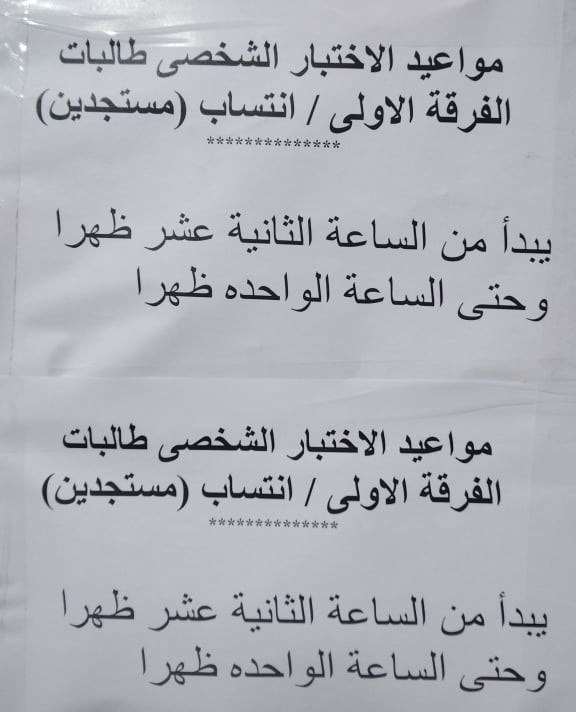 مواعيد الاختبار الشخصى طالبات
الفرقة الاولى / انتساب (مستجدين)
**************
يبدأ من الساعة الثانية عشر ظهرا
وحتى الساعة الواحده ظهرا
مواعيد الاختبار الشخصى طالبات
الفرقة الاولى / انتساب (مستجدين)
**************
يبدأ من الساعة الثانية عشر ظهرا
وحتى الساعة الواحده ظهرا